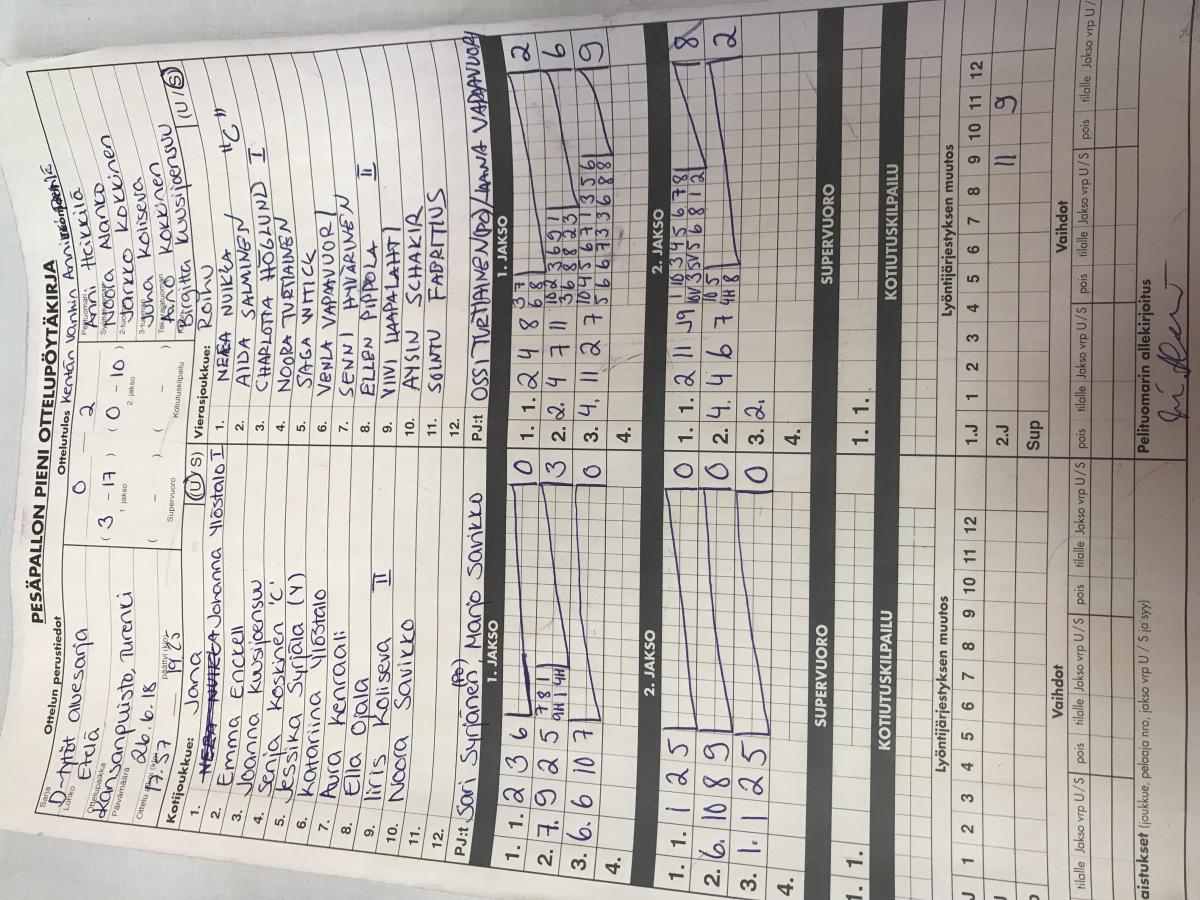 PESÄPALLON PIENI OTTELUPÖYTÄKIRJA
Ottelun perustiedot
Sarja D-tytöt aluesarja
Lohko Etelä
Ottelupaikka Kansanpuisto, Turenki
Päivämäärä 26.6.18
Ottelu alkoi (klo) 17.57 päättyi (klo) 19.25
Ottelutulos Kentän vanhin Anni
0 – 2
( 3 – 17 ) ( 0 – 10 )
1. jakso 2. jakso
( – ) ( – )
Supervuoro Kotiutuskilpailu
Pelituomari Heikkilä
Syöttötuomari Noora Alanko
2-tuomari Jarkko Kokkinen
3-tuomari Juha Koliseva
Takarajatuomari Aino Kokkinen
Birgitta Kuusijoensuu
Kotijoukkue: Jana (U/S)
1. Johanna Ylöstalo I
2. Emma Enckell
3. Joanna Kuusijoensuu
4. Senja Koskinen 'C'
5. Jessika Syrjälä (Y)
6. Katariina Ylöstalo
7. Aura Kenraali
8. Ella Ojala
9. Iiris Koliseva II
10. Noora Savikko
11.
12.
PJ:t Sari Syrjänen (PO), Marjo Savikko
Vierasjoukkue: Roihu (U/S)
1. NEEA NUIKKA "C"
2. AIDA SALMINEN
3. CHARLOTTA HÖGLUND I
4. NOORA TURTIAINEN
5. SAGA WITICK
6. VENLA VAPAAVUORI
7. SENNI HYVÄRINEN
8. ELLEN PIPPOLA II
9. VIIVI HAAPALAHTI
10. AYSIN SCHAKIR
11. SOINTU FABRITIUS
12.
PJ:t OSSI TURTIAINEN(PO)/JAANA VAPAAVUORI
1. JAKSO
1. 1. 2 3 6 0
2. 7. 9 2 5 7 8 1 3
9H 1 4H
3. 6. 6 10 7 0
4.
1. JAKSO
1. 1. 2 4 8 3 7 2
6 8
2. 2. 4 7 11 10 2 3 6 9 1 6
3 6 8 8 2 3
3. 4. 11 2 7 10 4 5 6 7 1 3 5 6 9
5 6 6 7 3 3 6 8 8
4.
2. JAKSO
1. 1. 1 2 5 0
2. 6. 10 8 9 0
3. 1. 1 2 5 0
4.
2. JAKSO
1. 1. 2 11 9 1 10 3 4 5 6 7 8 8
2. 4. 4 6 7 10 5 2
4H 8
3. 2.
4.
SUPERVUORO
1. 1.
SUPERVUORO
1. 1.
KOTIUTUSKILPAILU
KOTIUTUSKILPAILU
Lyöntijärjestyksen muutos
J 1 2 3 4 5 6 7 8 9 10 11 12
Lyöntijärjestyksen muutos
1.J 1 2 3 4 5 6 7 8 9 10 11 12
2.J 11 9
Sup
Vaihdot
tilalle Jakso vrp U / S pois tilalle Jakso vrp U / S pois tilalle Jakso vrp U / S
Vaihdot
pois tilalle Jakso vrp U / S pois tilalle Jakso vrp U / S pois tilalle Jakso vrp U /
aistukset (joukkue, pelaaja nro, jakso vrp U / S ja syy)
Pelituomarin allekirjoitus